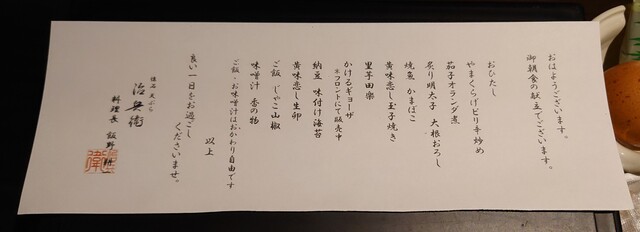 おはようございます。
御朝食の献立でございます。
おひたし
やまくらげピリ辛炒め
茄子オランダ煮
炙り明太子 大根おろし
焼魚 かまぼこ
黄味恋し玉子焼き
里芋田楽
かけるギョーザ
※フロントにて販売中
納豆 味付け海苔
黄味恋し生卵
ご飯 じゃこ山椒
味噌汁 香の物
ご飯・お味噌汁はおかわり自由です
以上
良い一日をお過ごし
くださいませ。
天ぷら
治兵衛
料理長 飯野